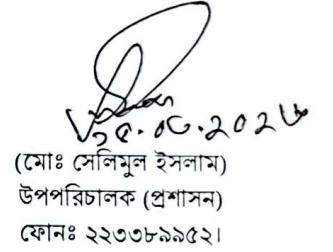 (মোঃ সেলিমুল ইসলাম)
উপপরিচালক (প্রশাসন)
ফোনঃ ২২৩৩৮৯৯৫২।